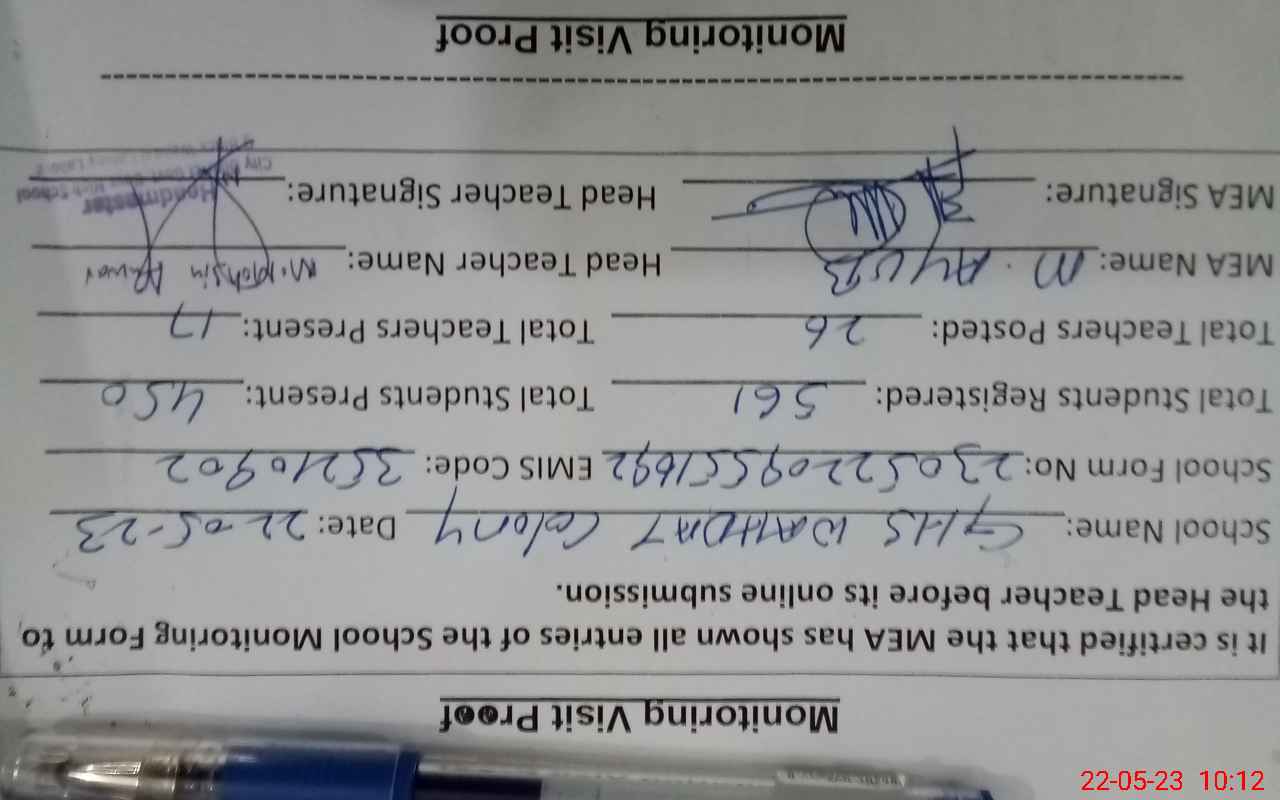 Monitoring Visit Proof
It is certified that the MEA has shown all entries of the School Monitoring Form to
the Head Teacher before its online submission.
School Name: GHS WAHDAT Colony Date: 22-05-23
School Form No: 23052209551692 EMIS Code: 35210902
Total Students Registered: 561 Total Students Present: 450
Total Teachers Posted: 26 Total Teachers Present: 17
MEA Name: M. AYUB Head Teacher Name: M. Mohsin
MEA Signature: Head Teacher Signature: Headmaster
Monitoring Visit Proof
22-05-23 10:12